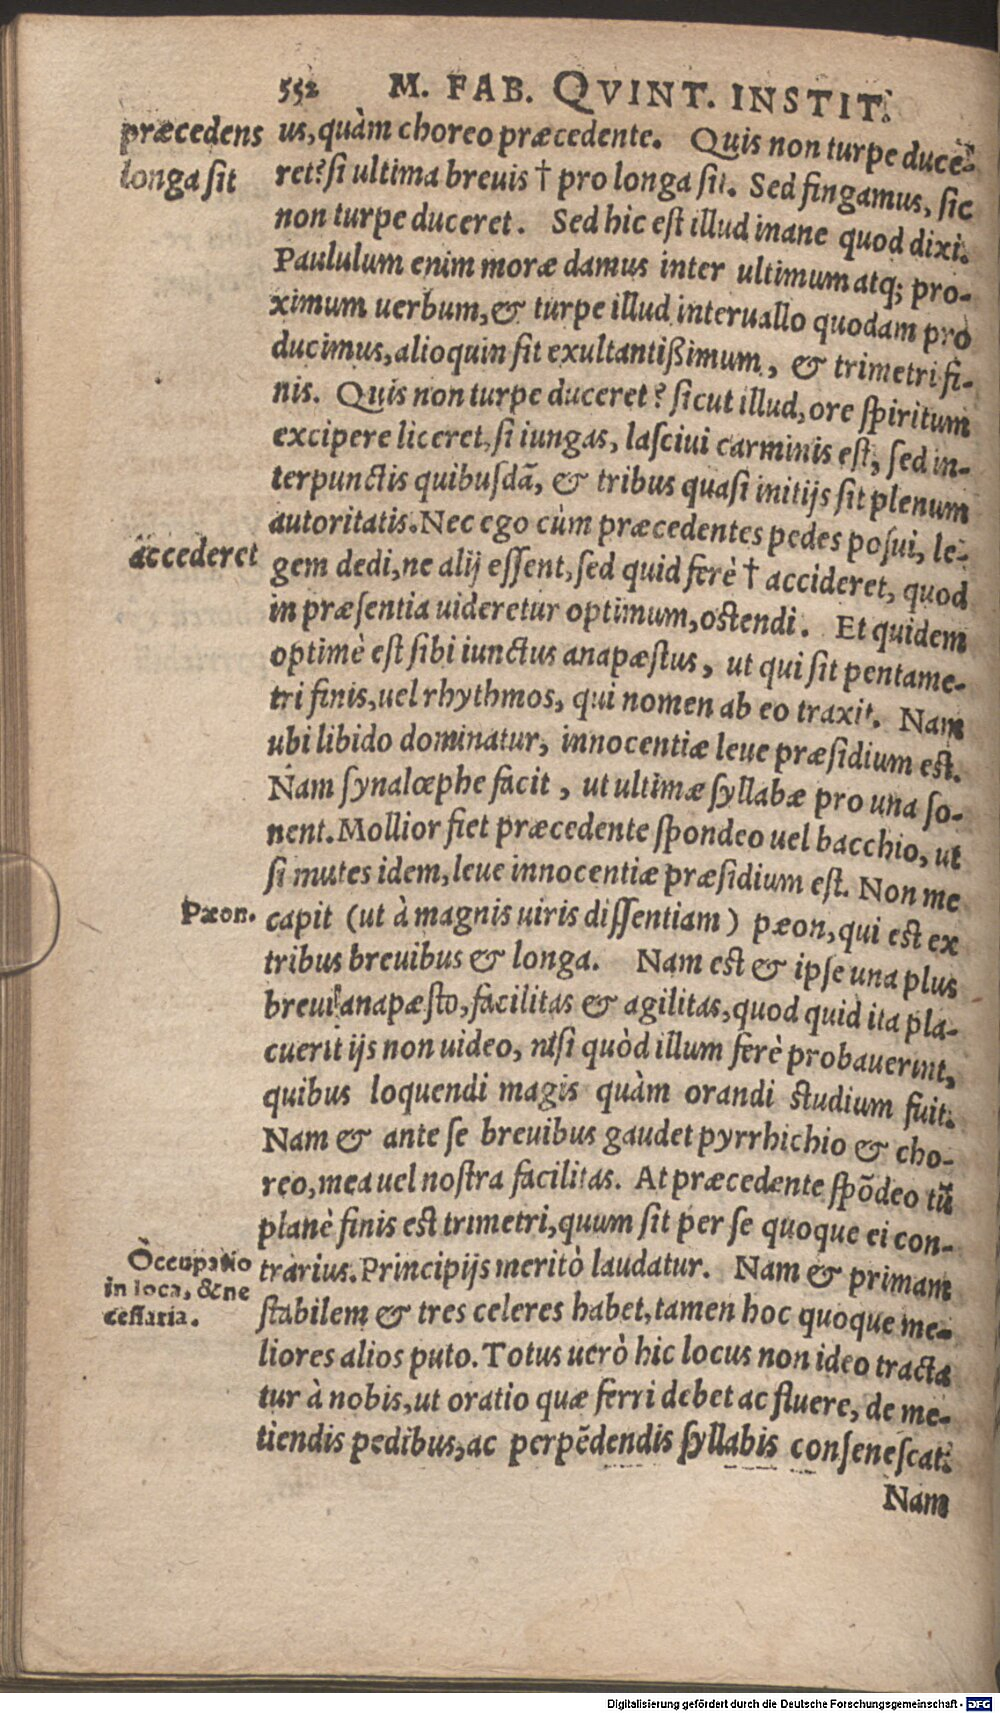 552 M. FAB. QVINT. INSTIT.
præcedens
longa sit
us, quàm choreo præcedente. Quis non turpe duce-
ret? si ultima breuis † pro longa sit. Sed fingamus, sic
non turpe duceret. Sed hic est illud inane quod dixi.
Paululum enim moræ damus inter ultimum atq; pro-
ximum uerbum, & turpe illud interuallo quodam pro
ducimus, alioquin fit exultantißimum, & trimetri fi-
nis. Quis non turpe duceret? sicut illud, ore spiritum
excipere liceret, si iungas, lasciui carminis est, sed in-
terpunctis quibusdã, & tribus quasi initijs fit plenum
autoritatis. Nec ego cùm præcedentes pedes posui, le-
accederet
gem dedi, ne alij essent, sed quid ferè † accideret, quod
in præsentia uideretur optimum, ostendi. Et quidem
optimè est sibi iunctus anapæstus, ut qui sit pentame-
tri finis, uel rhythmos, qui nomen ab eo traxit. Nam
ubi libido dominatur, innocentiæ leue præsidium est.
Nam synalœphe facit, ut ultimæ syllabæ pro una so-
nent. Mollior fiet præcedente spondeo uel bacchio, ut
si mutes idem, leue innocentiæ præsidium est. Non me
Pæon.
capit (ut à magnis uiris dissentiam) pæon, qui est ex
tribus breuibus & longa. Nam est & ipse una plus
breui anapæsto, facilitas & agilitas, quod quid ita pla-
cuerit ijs non uideo, nisi quòd illum ferè probauerint,
quibus loquendi magis quàm orandi studium fuit.
Nam & ante se breuibus gaudet pyrrhichio & cho-
reo, mea uel nostra facilitas. At præcedente spõdeo tũ
planè finis est trimetri, quum sit per se quoque ei con-
Occupatio
in loca, & ne
cessaria.
trarius. Principijs meritò laudatur. Nam & primam
stabilem & tres celeres habet, tamen hoc quoque me-
liores alios puto. Totus uerò hic locus non ideo tracta
tur à nobis, ut oratio quæ ferri debet ac fluere, de me-
tiendis pedibus, ac perpẽdendis syllabis consenescat.
Nam
Digitalisierung gefördert durch die Deutsche Forschungsgemeinschaft - DFG